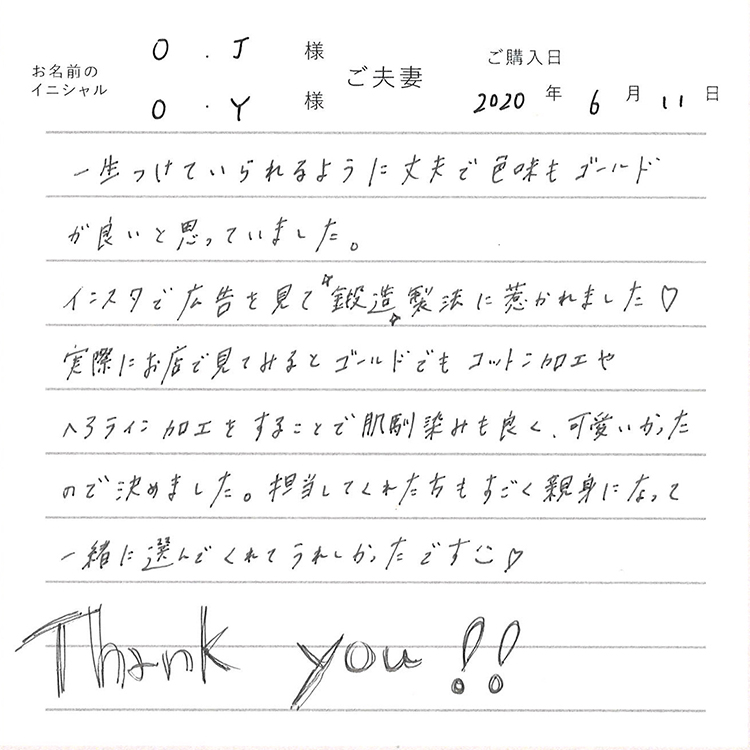 お名前の
イニシャル
O . J 様
O . Y 様
ご夫妻
ご購入日
2020 年 6 月 11 日
一生つけていられるように丈夫で色味もゴールド
が良いと思っていました。
インスタで広告を見て鍛造製法に惹かれました♡
実際にお店で見てみるとゴールドでもコットン加工や
ヘアライン加工をすることで肌馴染みも良く、可愛いかった
ので決めました。担当してくれた方もすごく親身になって
一緒に選んでくれてうれしかったです♡
Thank you!!